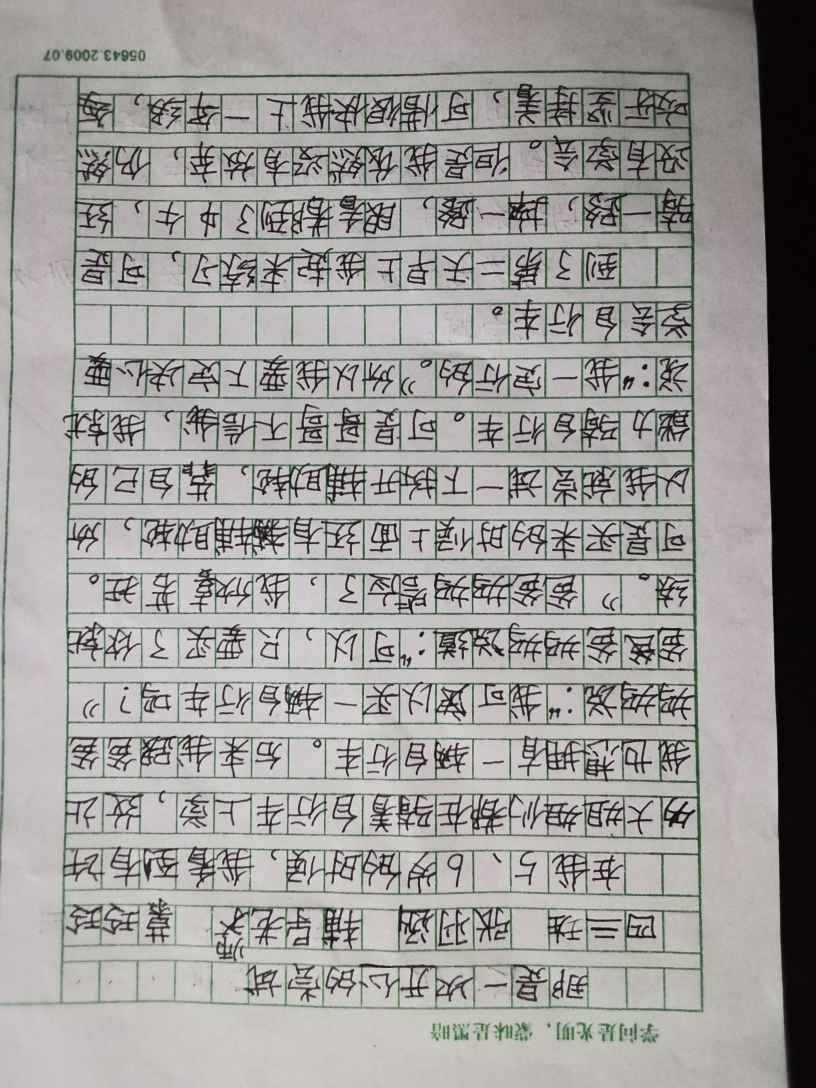 学问是光明，蒙昧是黑暗
那是一次开心的尝试
四三班 张羽涵 辅导老师 慕玲玲
在我5、6岁的时候，我看到有许
多大姐姐们都在骑着自行车上学，这让
我也想拥有一辆自行车。后来我跟爸爸
妈妈说：“我可以买一辆自行车吗？”
爸爸妈妈说道：“可以，只要买了你就
练。”爸爸妈妈答应了，我欣喜若狂。
可是买来的时候上面还有辅助轮，所
以我就尝试一下拆开辅助轮，靠自己的
能力骑自行车。可是哥哥不信我，我就
说：“我一定行的。”所以我要下定决心要
学会自行车。
到了第二天早上我起来练习，可是
骑一路，摔一路，眼看着到了中午，还
没有学会。但是我依然没有放弃，仍然
坚持着，可惜很快我上一年级，每
05643.2009.07